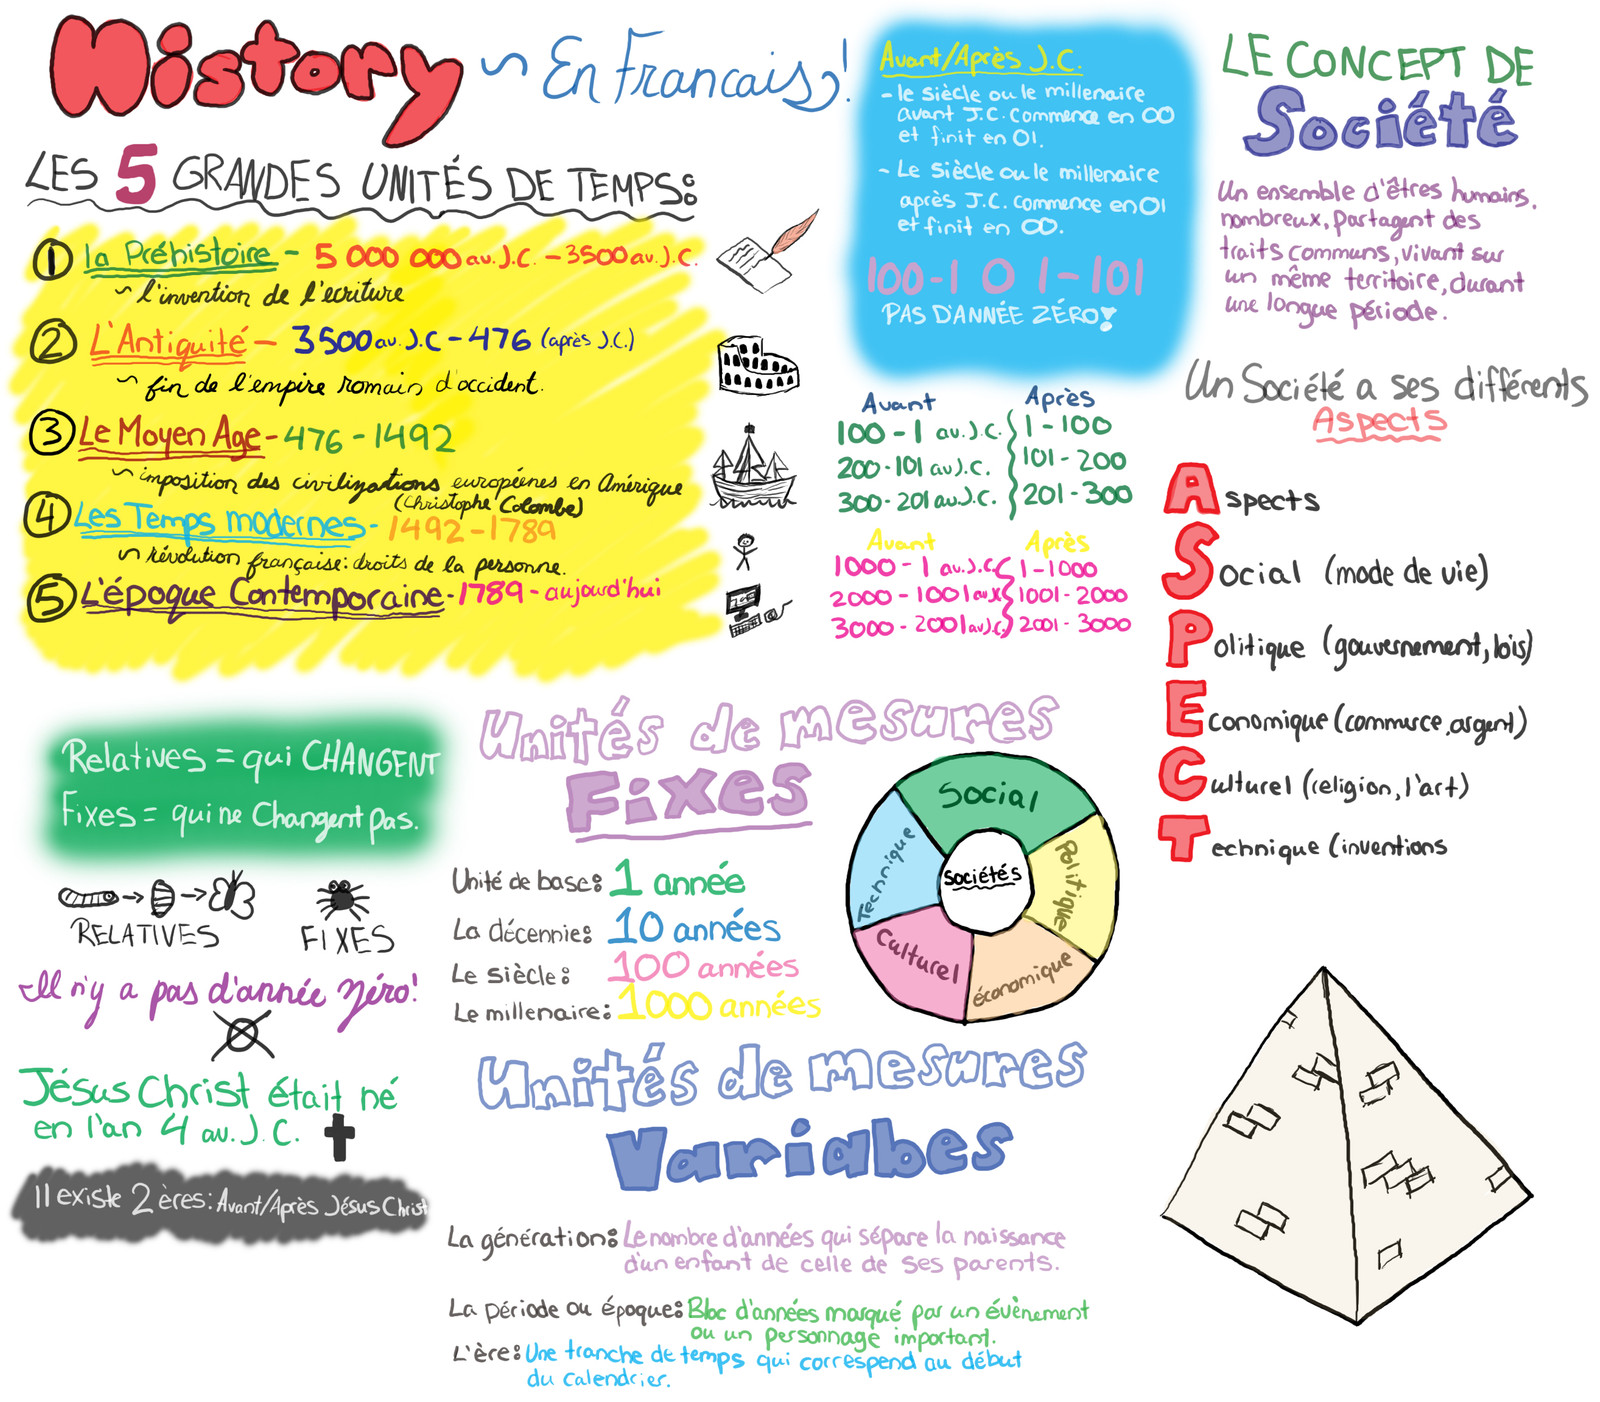 History ~ En Francais!
LES 5 GRANDES UNITÉS DE TEMPS:
1 la Préhistoire - 5 000 000 av. J.C. - 3500 av. J.C.
~ l'invention de l'ecriture
2 L'Antiquité - 3500 av. J.C - 476 (après J.C.)
~ fin de l'empire romain d'occident.
3 Le Moyen Age - 476 - 1492
~ imposition des civilizations européenes en Amérique
(Christophe Colombe)
4 Les Temps modernes - 1492 - 1789
~ révolution française: droits de la personne.
5 L'époque Contemporaine - 1789 - aujourd'hui
Avant/Après J.C.
- le siècle ou le millenaire
avant J.C. commence en 00
et finit en 01.
- Le siècle ou le millenaire
après J.C. commence en 01
et finit en 00.
100-1 0 1-101
PAS D'ANNÉE ZÉRO!
Avant Après
100 - 1 av. J.C. 1 - 100
200 - 101 av J.C. 101 - 200
300 - 201 av. J.C. 201 - 300
Avant Après
1000 - 1 av. J.C. 1 - 1000
2000 - 1001 av. J.C. 1001 - 2000
3000 - 2001 av. J.C. 2001 - 3000
LE CONCEPT DE
Société
Un ensemble d'êtres humains,
nombreux, partagent des
traits communs, vivant sur
un même territoire, durant
une longue période.
Un Société a ses différents
Aspects
Aspects
Social (mode de vie)
Politique (gouvernement, lois)
Economique (commerce, argent)
Culturel (religion, l'art)
Technique (inventions
Relatives = qui CHANGENT
Fixes = qui ne Changent pas.
RELATIVES FIXES
Il n'y a pas d'année zéro!
Jésus Christ était né
en l'an 4 av. J. C.
Il existe 2 ères: Avant/Après Jésus Christ
Unités de mesures
Fixes
Unité de base: 1 année
La décennie: 10 années
Le siècle: 100 années
Le millenaire: 1000 années
Social
Politique
économique
Culturel
Technique
Sociétés
Unités de mesures
Variabes
La génération: Le nombre d'années qui sépare la naissance
d'un enfant de celle de ses parents.
La période ou époque: Bloc d'années marqué par un évènement
ou un personnage important.
L'ère: Une tranche de temps qui correspond au début
du calendrier.